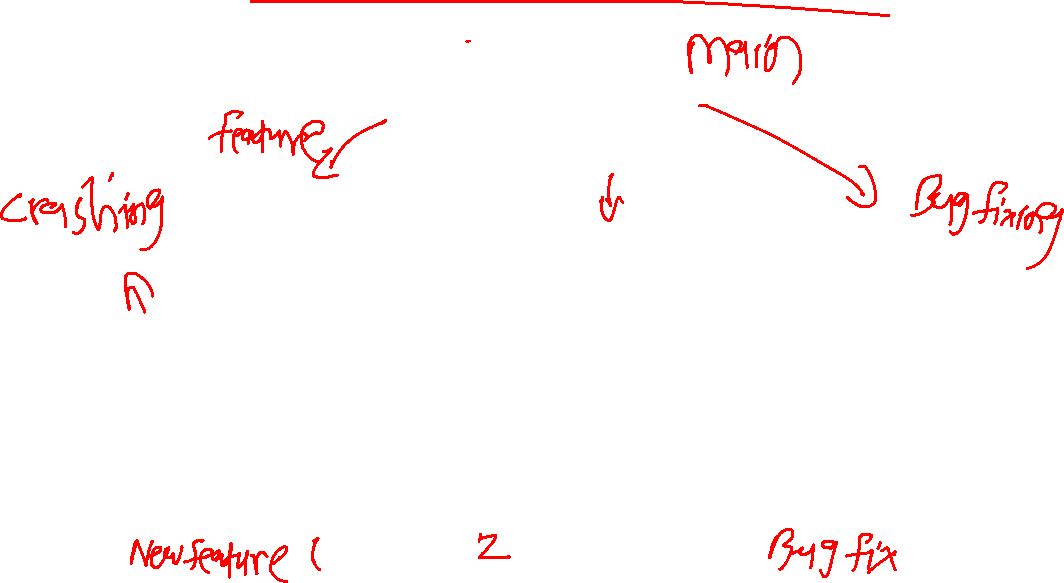 main
feature
crashing
Bug fixing
New feature 1
2
Bug fix